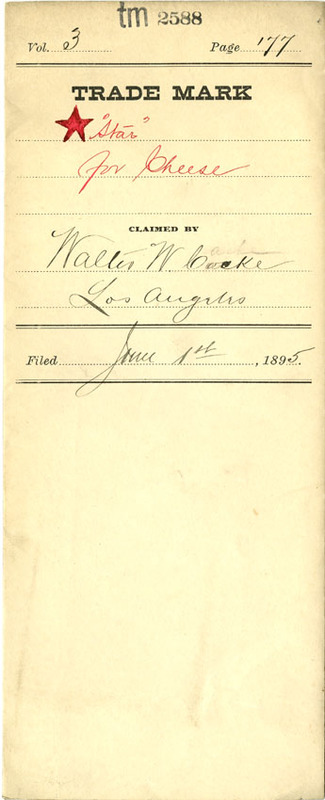 tm 2588
Vol. 3 Page 177
TRADE MARK
"Star"
for Cheese
CLAIMED BY
Walter W. Cooke
Los Angeles
Filed June 1st, 1895.